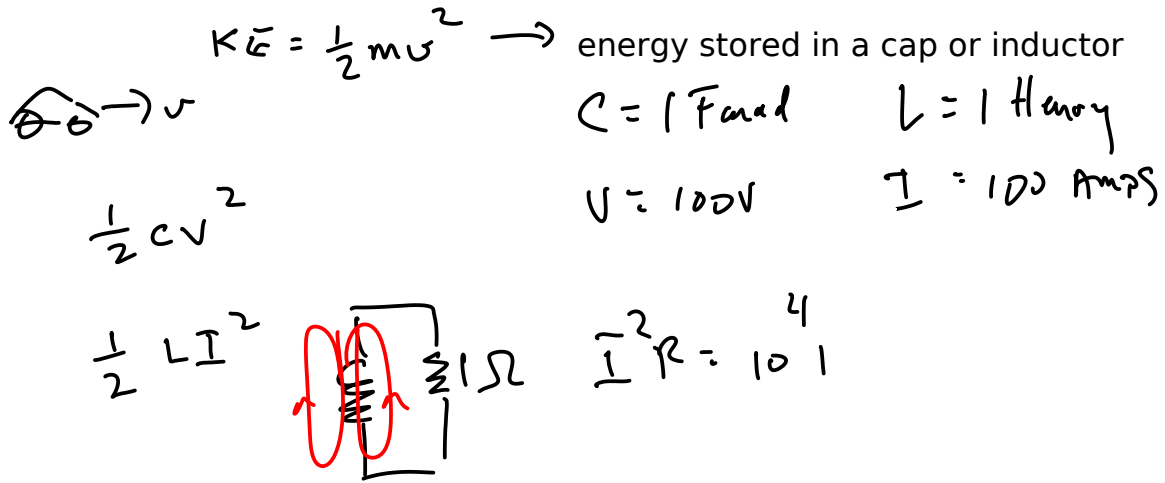 KE = 1/2 mv² → energy stored in a cap or inductor
→ v
C = 1 Farad L = 1 Henry
V = 100V I = 100 Amps
1/2 CV²
1/2 LI²
1Ω
I²R = 10⁴ 1